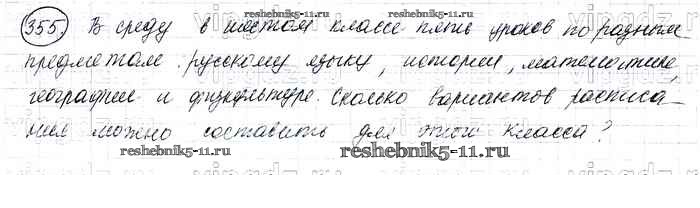 355. В среду в шестом классе пять уроков по разным
предметам: русскому языку, истории, математике,
географии и физкультуре. Сколько вариантов расписа-
ния можно составить для этого класса?
reshebnik5-11.ru
reshebnik5-11.ru
reshebnik5-11.ru